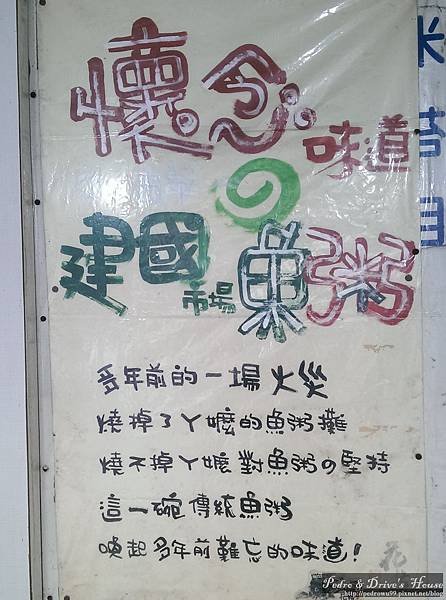 懷念
味道
の
建國
市場
魚粥
多年前的一場火災
燒掉了ㄚ嬤的魚粥攤
燒不掉ㄚ嬤對魚粥の堅持
這一碗傳統魚粥
喚起多年前難忘的味道!
花
米苔目
Pedro & Drive's House
http://pedrowu99.pixnet.net/blog/